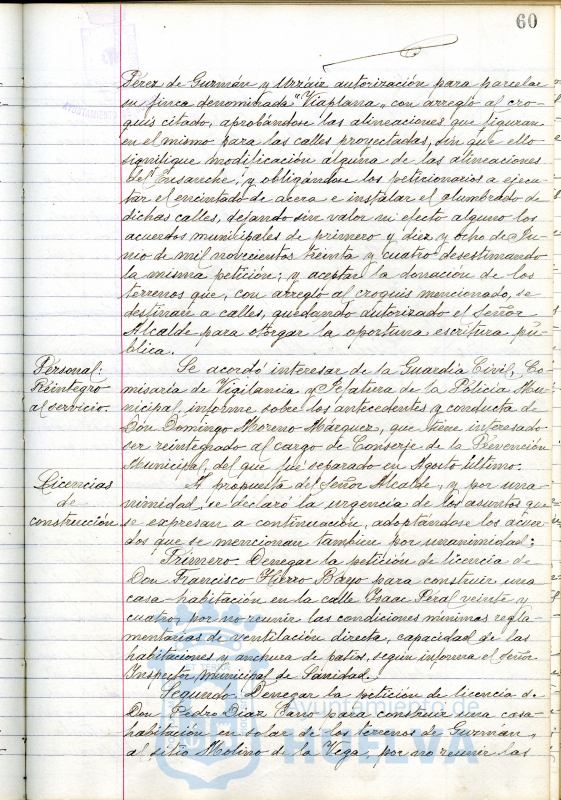 60
Pérez de Guzmán y Urzáiz autorización para parcelar
su finca denominada "Viaplana", con arreglo al cro-
quis citado, aprobándose las alineaciones que figuran
en el mismo para las calles proyectadas, sin que ello
signifique modificación alguna de las alineaciones
del Ensanche, y obligándose los peticionarios a ejecu-
tar el encintado de acera e instalar el alumbrado de
dichas calles, dejando sin valor ni efecto alguno los
acuerdos municipales de primero y diez y ocho de Ju-
nio de mil novecientos treinta y cuatro desestimando
la misma petición; y aceptar la donación de los
terrenos que, con arreglo al croquis mencionado, se
destinan a calles, quedando autorizado el Señor
Alcalde para otorgar la oportuna escritura pú-
blica.
Personal:
Reintegro
al servicio.
Se acordó interesar de la Guardia Civil, Co-
misaría de Vigilancia y Jefatura de la Policía Mu-
nicipal, informe sobre los antecedentes y conducta de
Don Domingo Moreno Márquez, que tiene interesado
ser reintegrado al cargo de Conserje de la Prevención
Municipal, del que fué separado en Agosto último.
Licencias
de
construcción
A propuesta del Señor Alcalde, y por una-
nimidad, se declaró la urgencia de los asuntos que
se expresan a continuación, adoptándose los acuer-
dos que se mencionan tambien por unanimidad:
Primero. Denegar la petición de licencia de
Don Francisco Hierro Bayo para construir una
casa-habitación en la calle Isaac Peral veinte y
cuatro, por no reunir las condiciones mínimas regla-
mentarias de ventilación directa, capacidad de las
habitaciones y anchura de patios, según informa el señor
Inspector Municipal de Sanidad.
Segundo. Denegar la petición de licencia de
Don Pedro Díaz Cano para construir una casa-
habitación en solar de los terrenos de Guzmán,
al sitio Molino de la Vega, por no reunir las
Ayuntamiento de
HUELVA